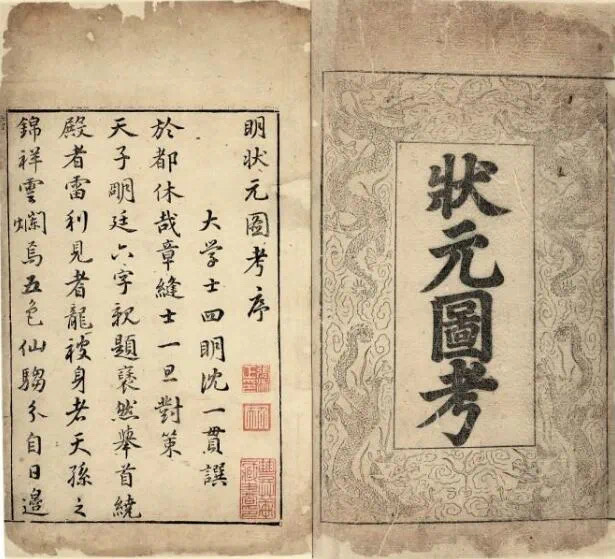 狀元圖考
明狀元圖考序
大学士四明沈一貫譔
於都休哉章縫士一旦對策
天子明廷六字親題褎然舉首繞
殿者雷利見者龍被身者天孫之
錦祥雲爛焉五色仙驺分自日邊